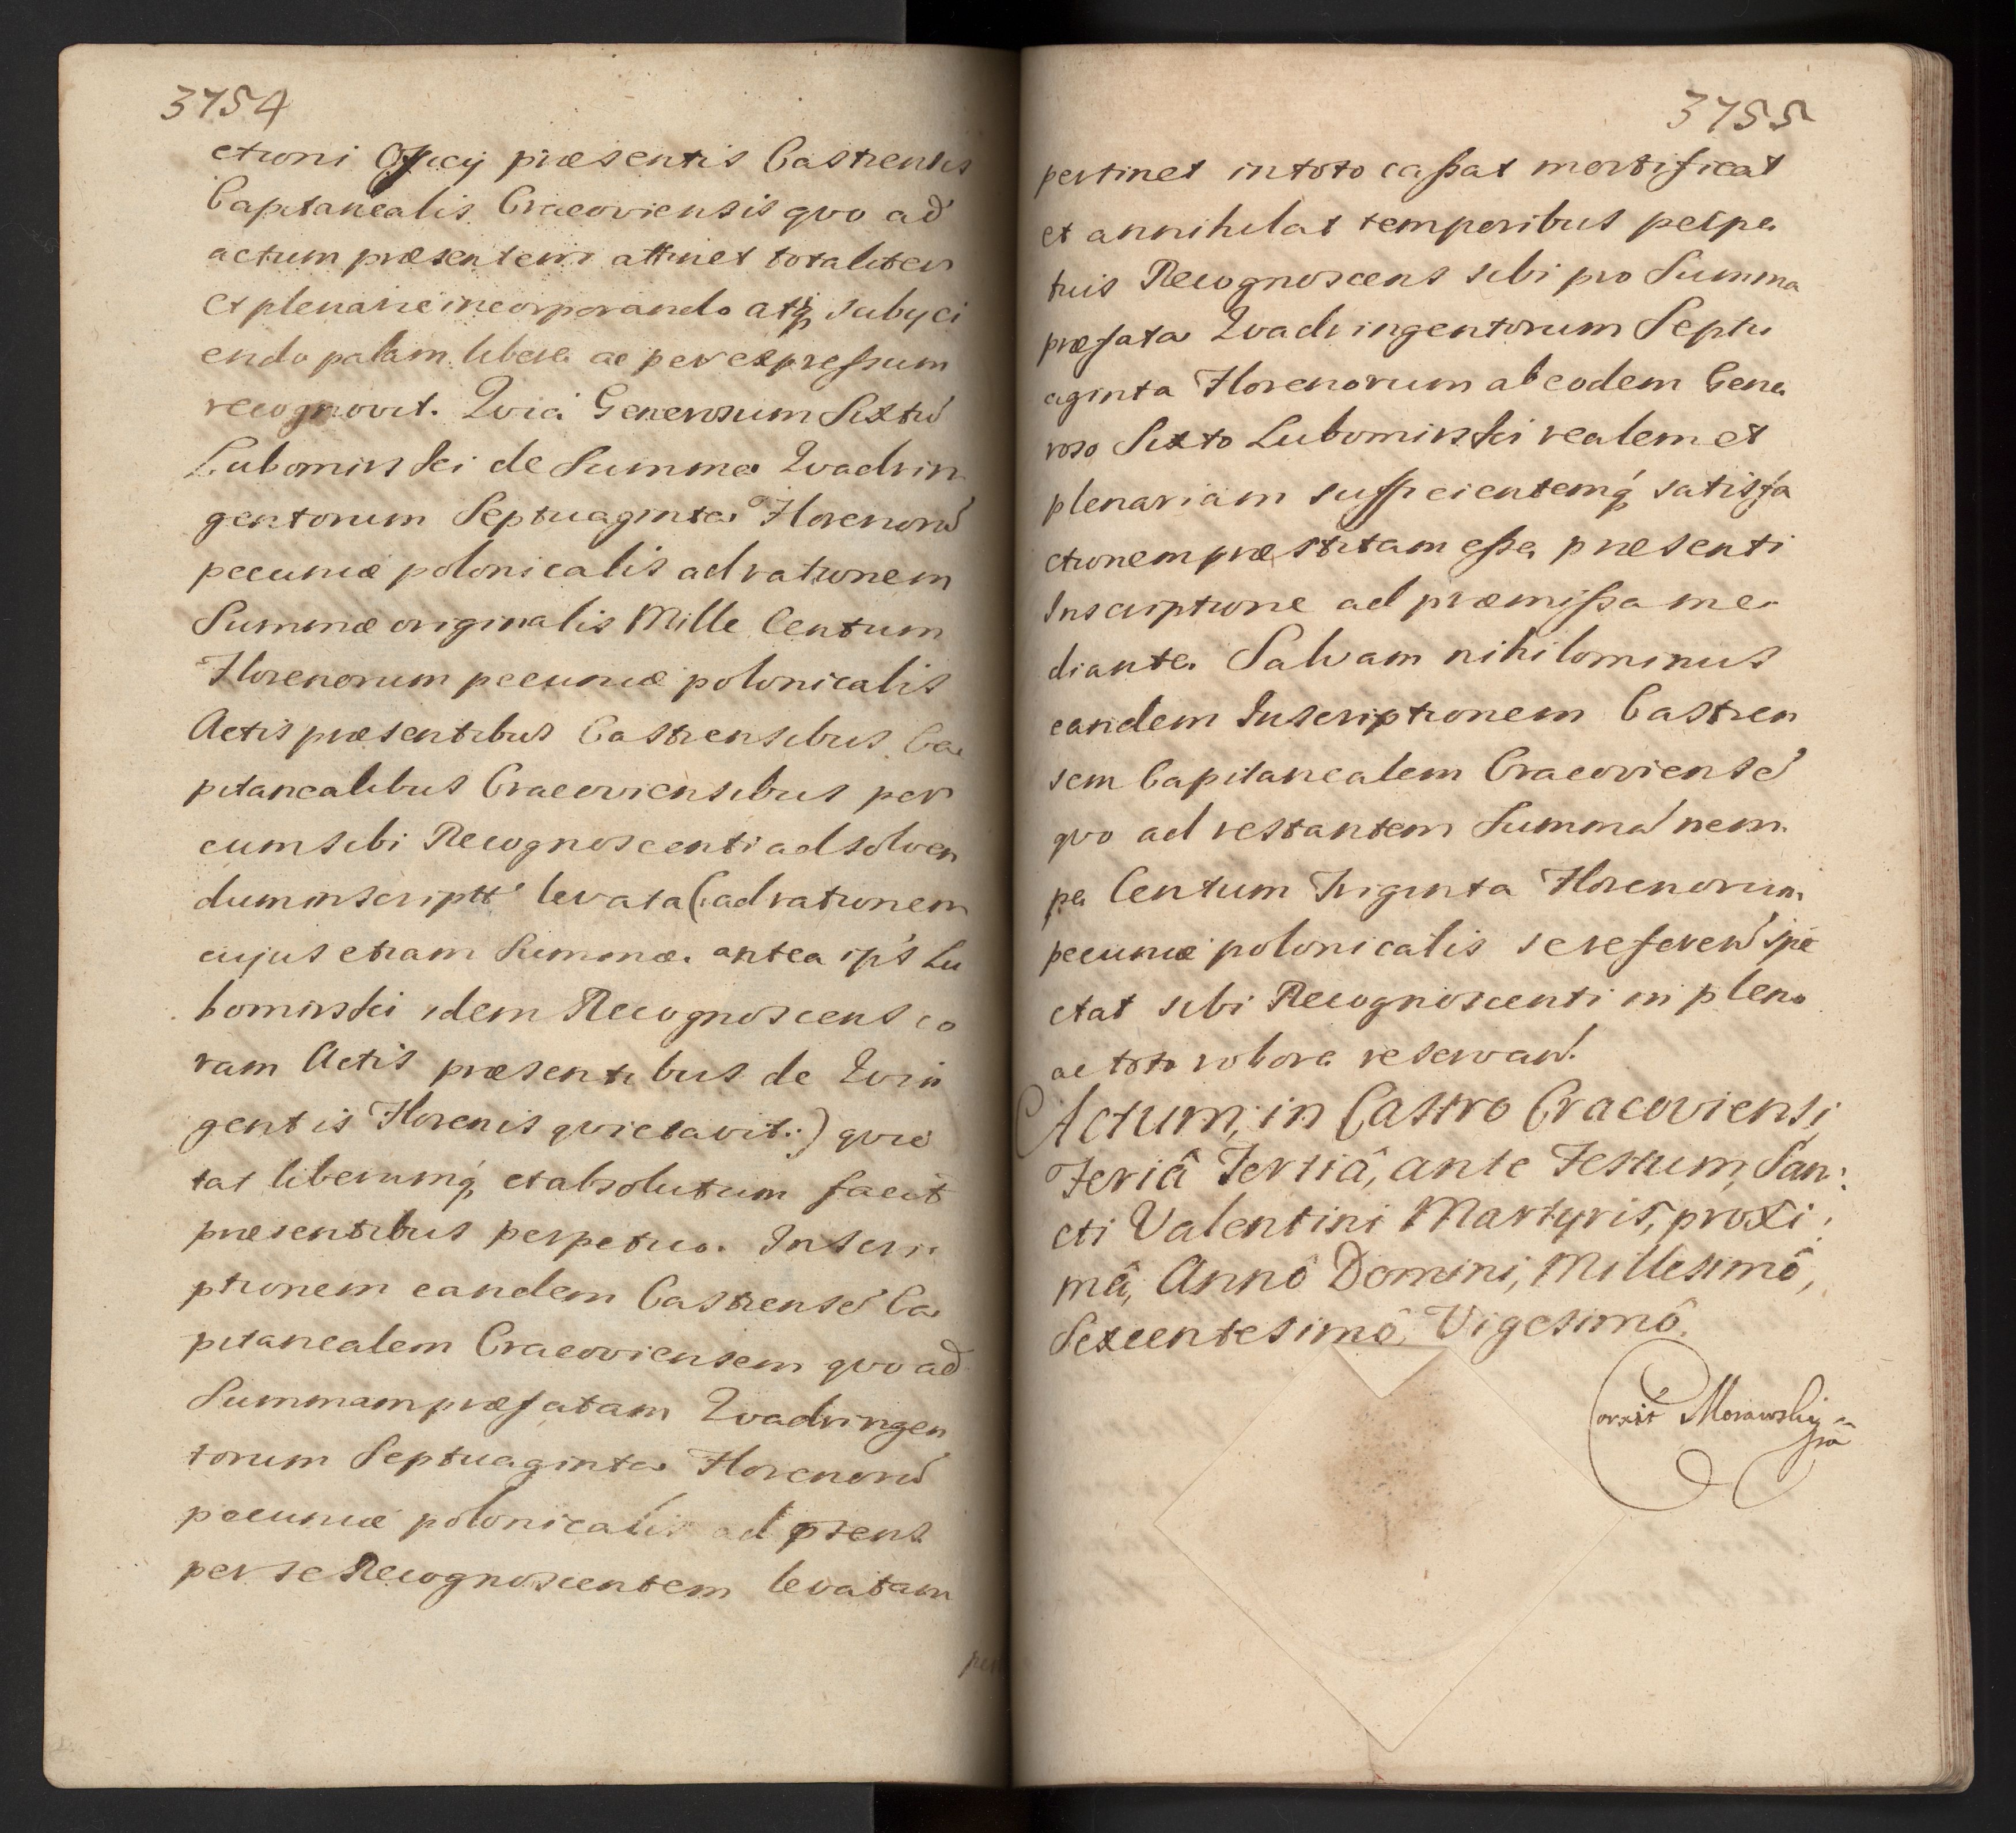 3754
ctioni Officij præsentis Castrensis
Capitanealis Cracoviensis qvo ad
actum præsentem attinet totaliter
et plenarie incorporando atq́ subyci
endo palam libere ac per expreſsum
recognovit. Qvia Generosum Sixtu̍
Lubomirski de Summa Qvadrin
gentorum Septuaginta Florenoru̍
pecuniæ polonicalis ad rationem
Summæ originalis Mille Centum
Florenorum pecuniæ polonicalis
Actis præsentibus Castrensibus Ca
pitanealibus Cracoviensibus per
eum sibi Recognoscenti ad solven
dum inscriptt levata (: ad rationem
cujus etiam Summæ antea ips Lu
bomirski idem Recognoscens co
ram Actis præsentibus de Qvin
gentis Florenis qvietavit :) qvie
tat liberumq́ et absolutum facit
præsentibus perpetuo. Inscri
ptionem eandem Castrense̍ Ca
pitanealem Cracoviensem qvo ad
Summam præfatam Qvadringen
torum Septuaginta Florenoru̍
pecuniæ polonicalis ad prsens
per se Recognoscentem levatam
per
3755
pertinet in toto caſsat mortificat
et annihilat temporibus perpe
tuis Recognoscens sibi pro Summa
præfata Qvadringentorum Septu
aginta Florenorum ab eodem Gene
roso Sixto Lubomirski realem et
plenariam sufficientemq́ satisfa
ctionem præstitam eſse præsenti
Inscriptione ad præmiſsa me
diante. Salvam nihilominus
eandem Inscriptionem Castren
sem Capitanealem Cracoviense̍
qvo ad restantem Summa̍ nem
pe Centum Triginta Florenorum
pecuniæ polonicalis se referen̍ spe
ctat sibi Recognoscenti in pleno
ac toto robore reservan̍.
Actum, in Castro Cracoviensi
Feriâ Tertiâ, ante Festum, San:
cti Valentini Martyris, proxi:
mâ, Annô Domini, Millesimô,
Sexcentesimô, Vigesimô.
Corexit Morawskij